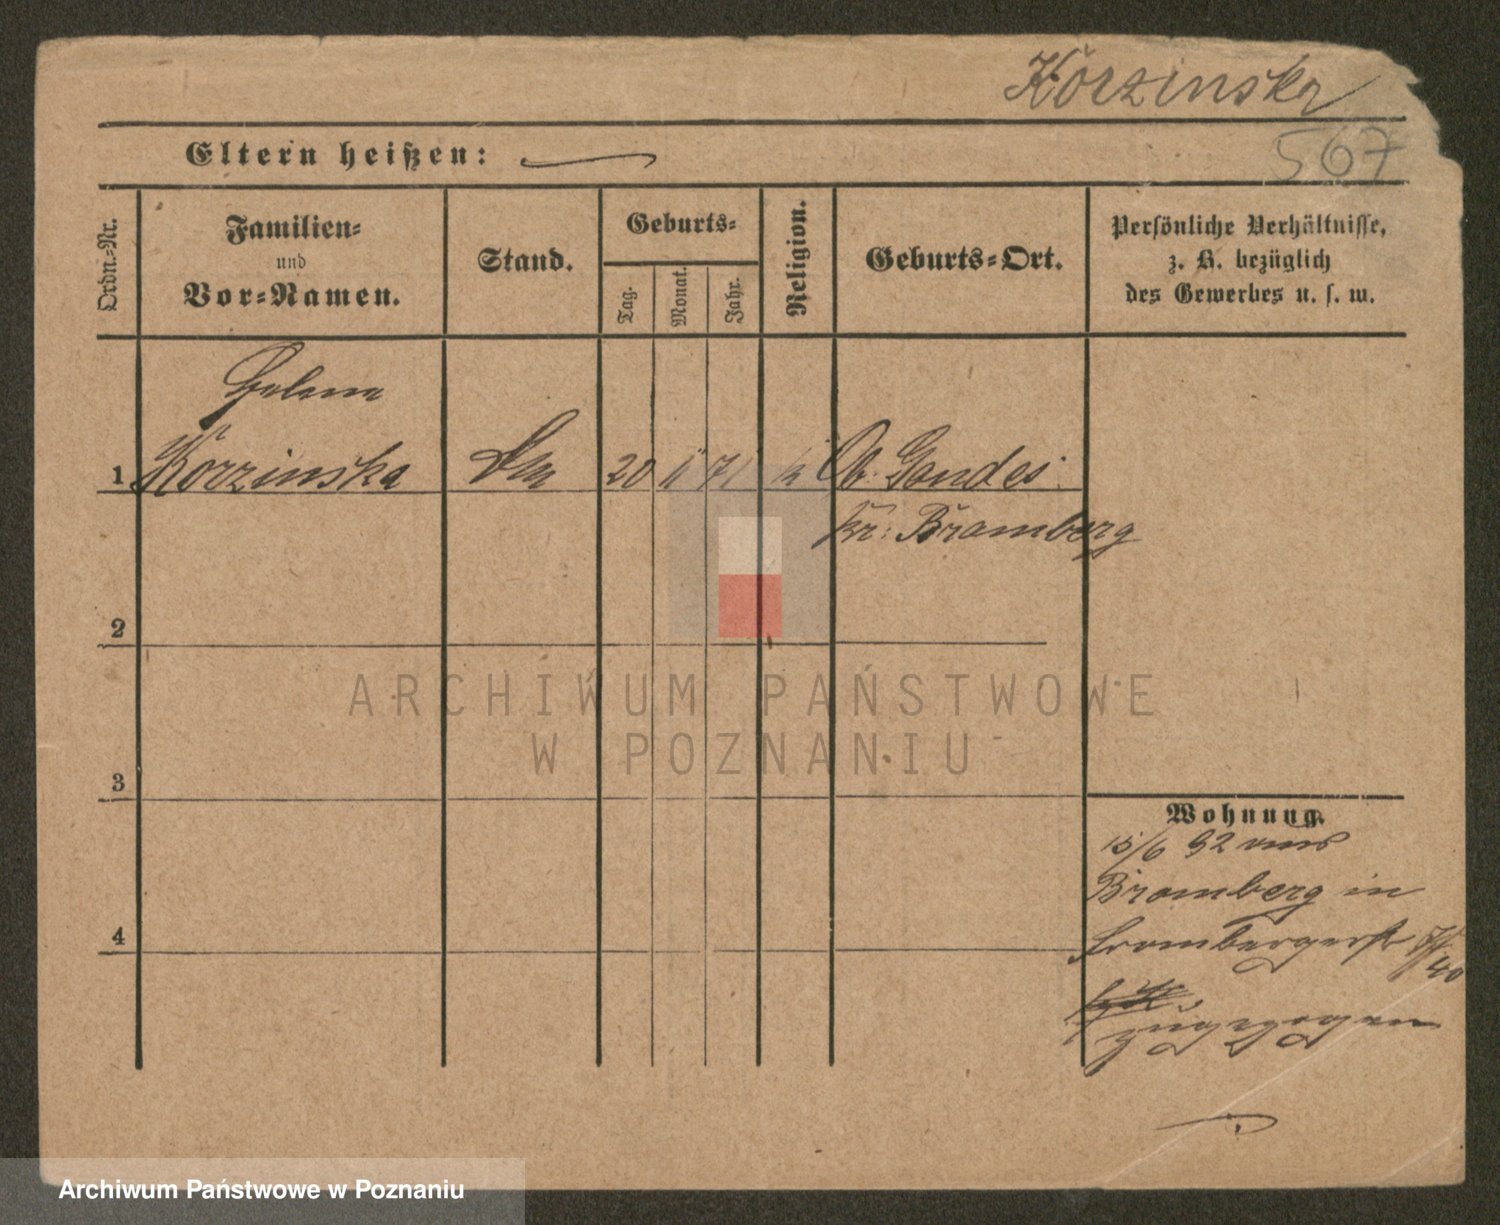 Korzinska
567
Eltern heißen:
Ordn.-Nr.
Familien-
und
Vor-Namen.
Stand.
Geburts-
Tag.
Monat.
Jahr.
Religion.
Geburts-Ort.
Persönliche Verhältnisse,
z. B. bezüglich
des Gewerbes u. s. w.
Helene
1 Korzinska 20 11 71 k Gondes
Kr: Bromberg
2
3
4
Wohnung.
15/6 92 von
Bromberg in
Brombergerstr 40
zugezogen
ARCHIWUM PAŃSTWOWE
W POZNANIU
Archiwum Państwowe w Poznaniu